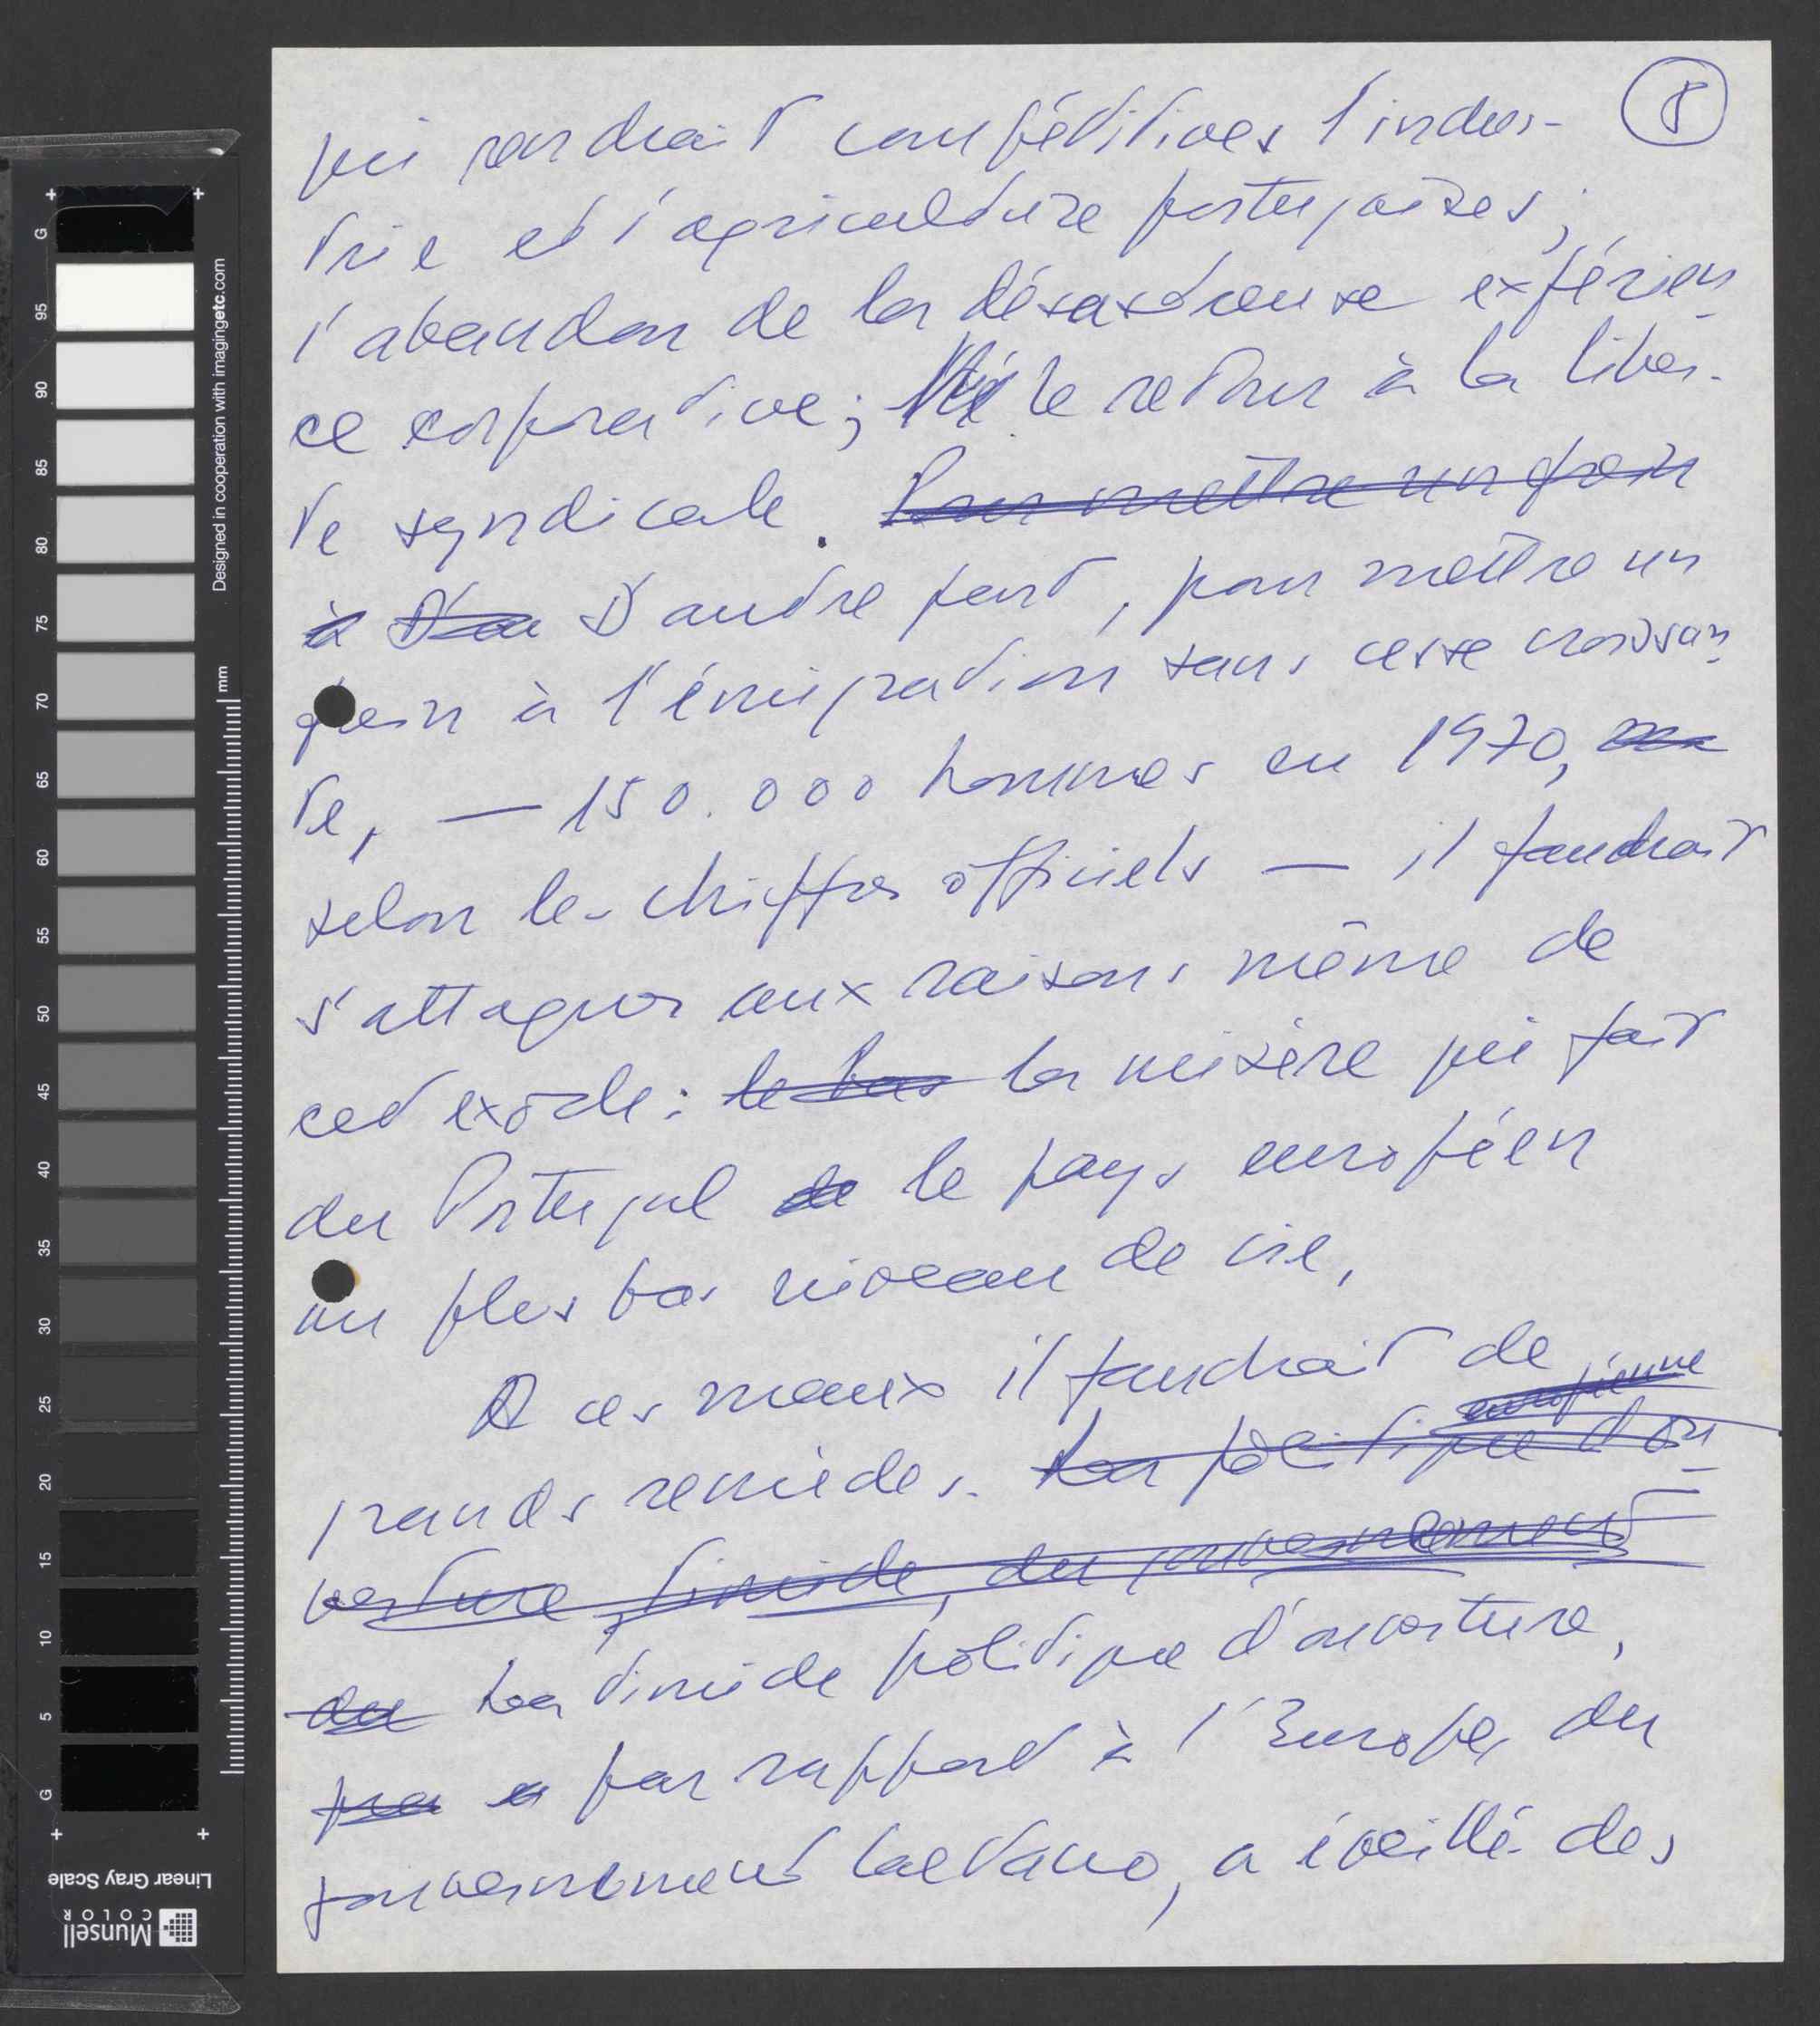 8
qui rendrait compétitives l'indus-
trie et l'agriculture portugaises;
l'abandon de la désastreuse expérien-
ce corporative; le retour à la liber-
té syndicale. Pour mettre un frein
à D'au D'autre part, pour mettre un
frein à l'émigration sans cesse croissan-
te, — 150.000 hommes en 1970,
selon les chiffres officiels — il faudrait
s'attaquer aux raisons même de
cet exode: le bas la misère qui fait
du Portugal de le pays européen
au plus bas niveau de vie.
A ces maux il faudrait de
européenne
grands remèdes. La politique d'ou-
verture, timide, du gouvernement
du La timide politique d'ouverture,
par rapport à l'Europe, du
gouvernement Caetano, a éveillé des
G
95
90
85
80
75
70
65
60
55
50
45
40
35
30
25
20
15
10
5
G
mm
Designed in cooperation with imagingetc.com
Linear Gray Scale
Munsell
COLOR